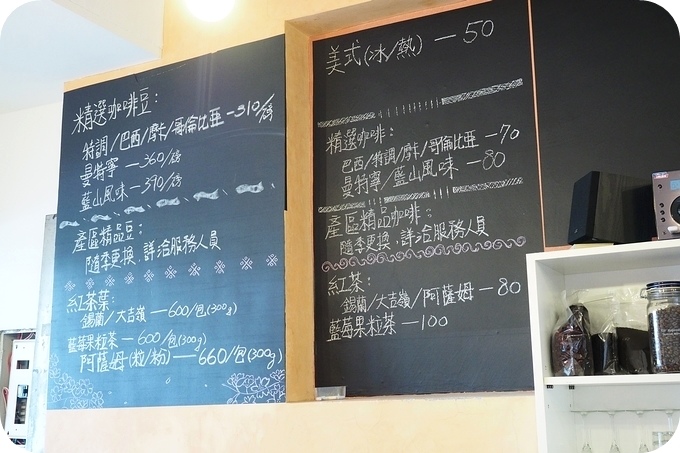 精選咖啡豆：
特調/巴西/摩卡/哥倫比亞—310/磅
曼特寧—360/磅
藍山風味—390/磅
產區精品豆：
隨季更換，詳洽服務人員
紅茶葉：
錫蘭/大吉嶺—600/包(300g)
藍莓果粒茶—600/包(300g)
阿薩姆(粒/粉)—660/包(300g)
美式(冰/熱)—50
精選咖啡：
巴西/特調/摩卡/哥倫比亞—70
曼特寧/藍山風味—80
產區精品咖啡：
隨季更換，詳洽服務人員
紅茶：
錫蘭/大吉嶺/阿薩姆—80
藍莓果粒茶—100